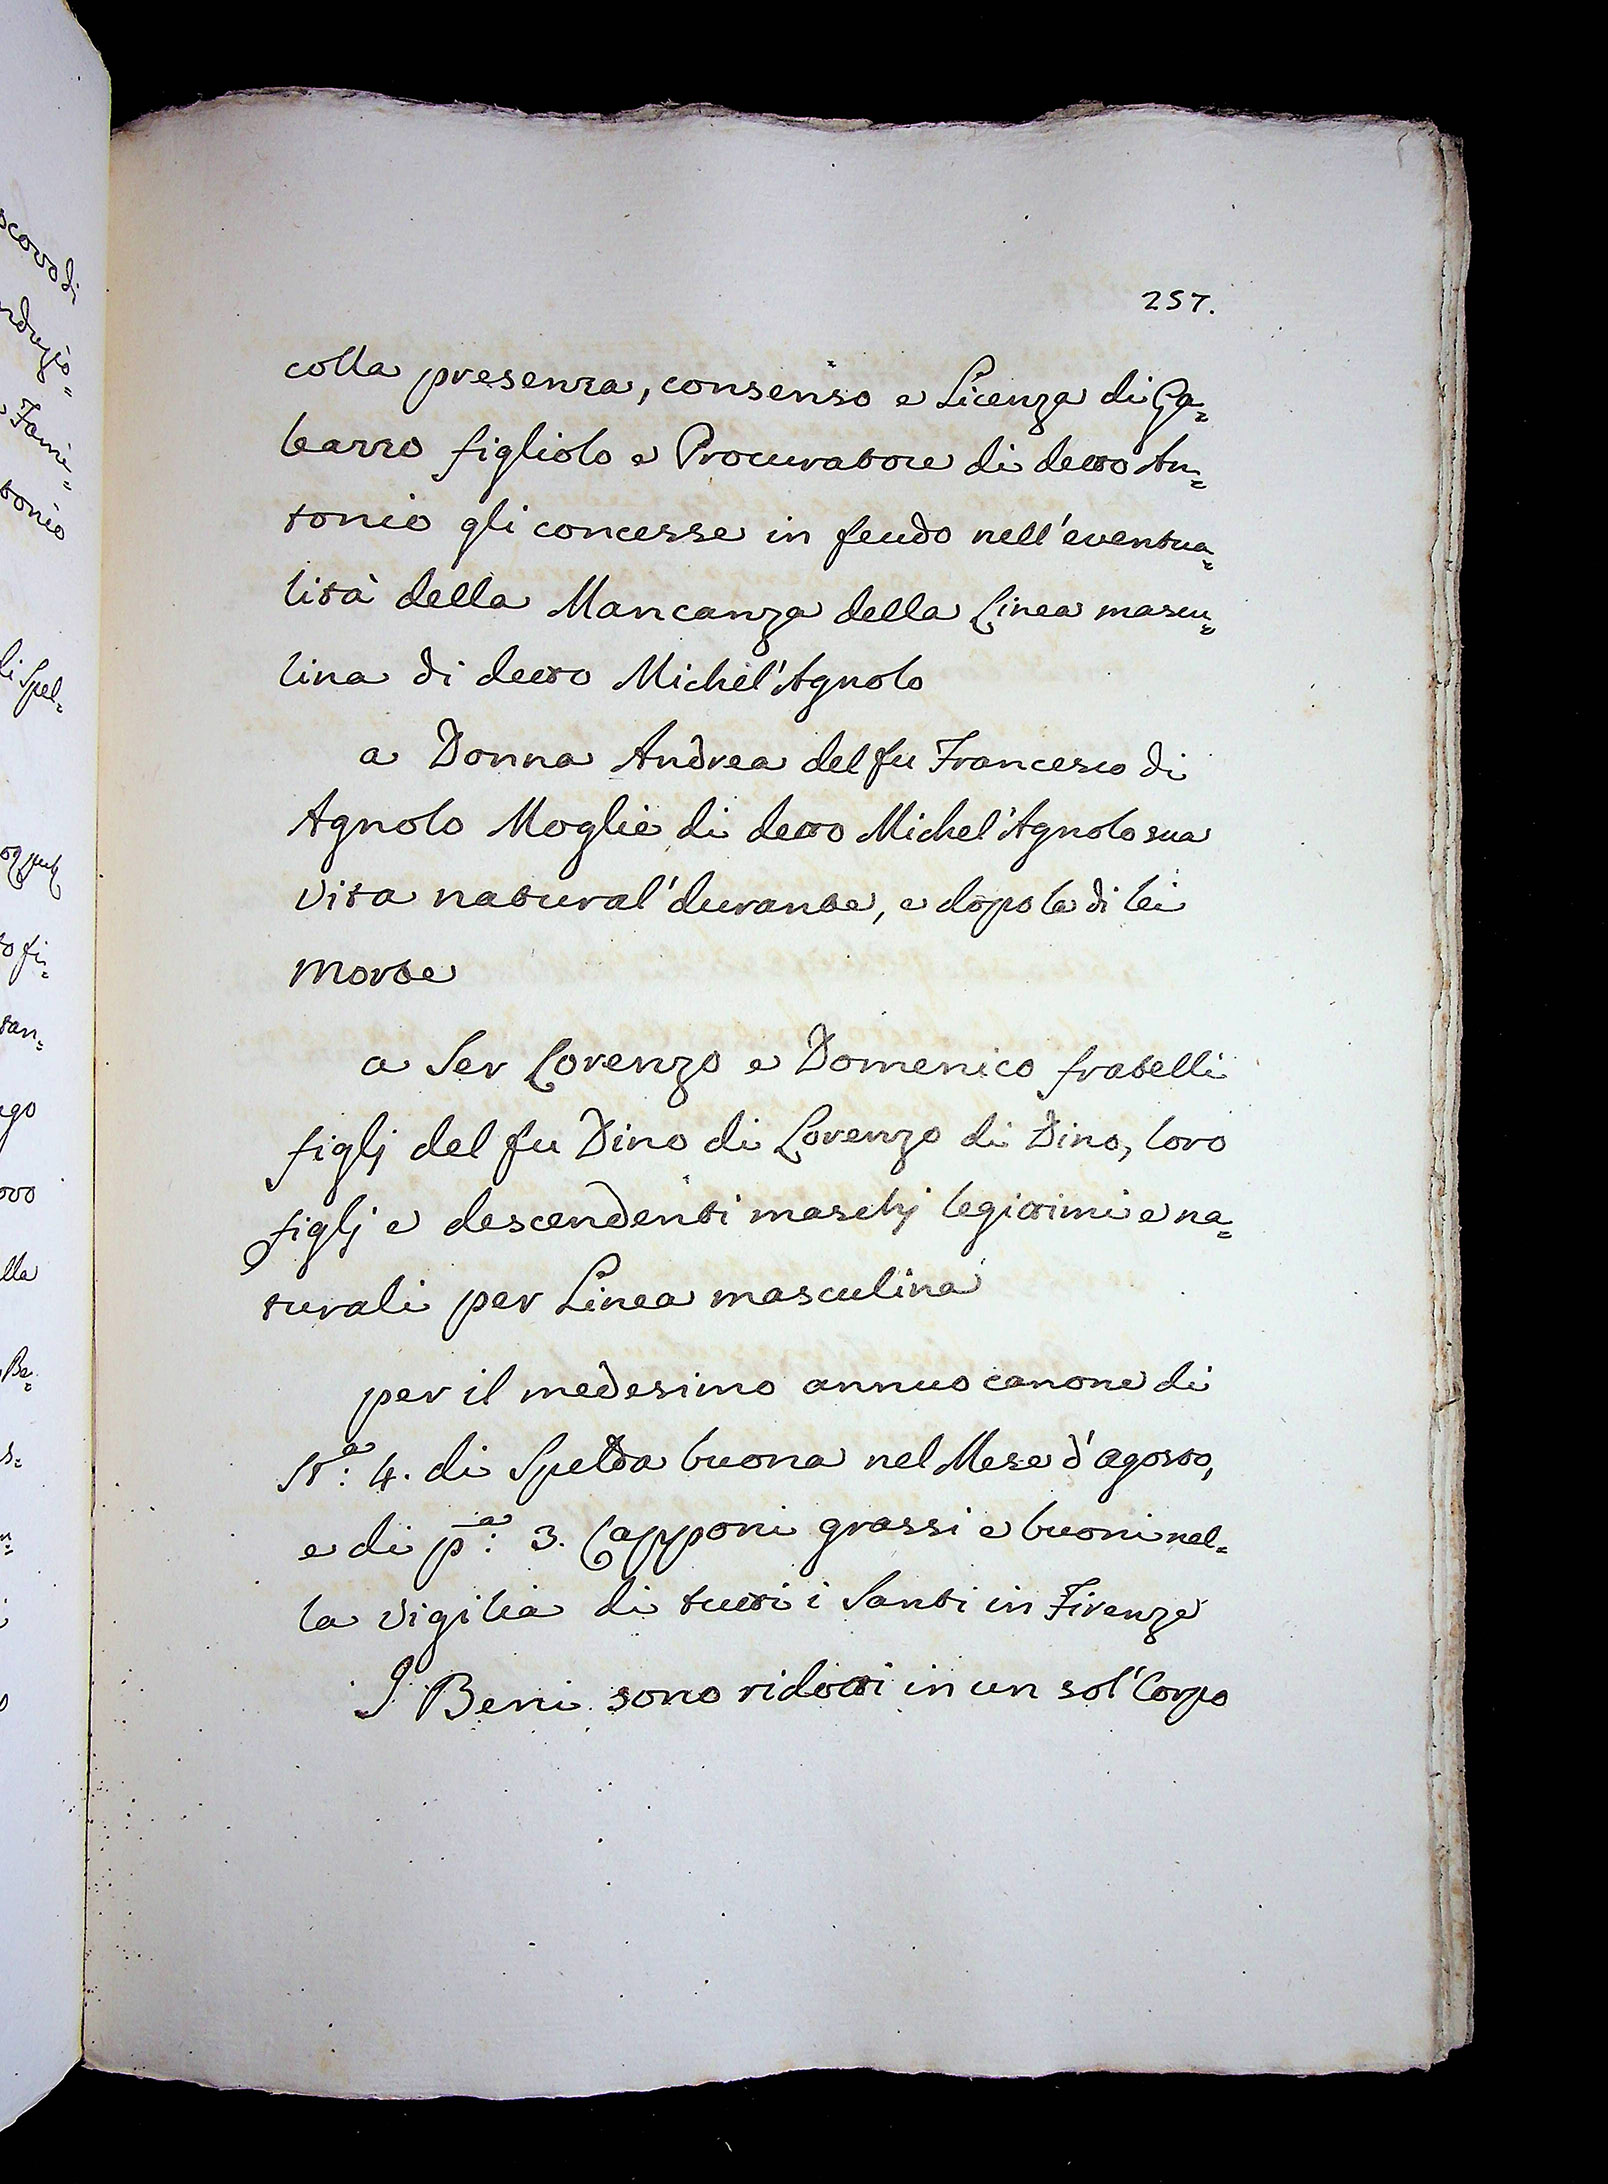 257.
colla presenza, consenso e Licenza di Ga=
leazzo figliolo e Procuratore di detto An=
tonio gli concesse in feudo nell'eventua=
lità della Mancanza della Linea mascu=
lina di detto Michel'Agnolo
a Donna Andrea del fu Francesco di
Agnolo Moglie di detto Michel'Agnolo sua
vita natural'durante, e dopo la di lei
morte
a Ser Lorenzo e Domenico fratelli
figlj del fu Dino di Lorenzo di Dino, loro
figlj e descendenti maschj legittimi e na=
turali per Linea masculina
per il medesimo annuo canone di
St.ª: 4. di Spelda buona nel Mese d'agosto,
e di p.ª: 3. Capponi grassi e buoni nel=
la vigilia di tutti i Santi in Firenze
I Beni sono ridotti in un sol'Corpo